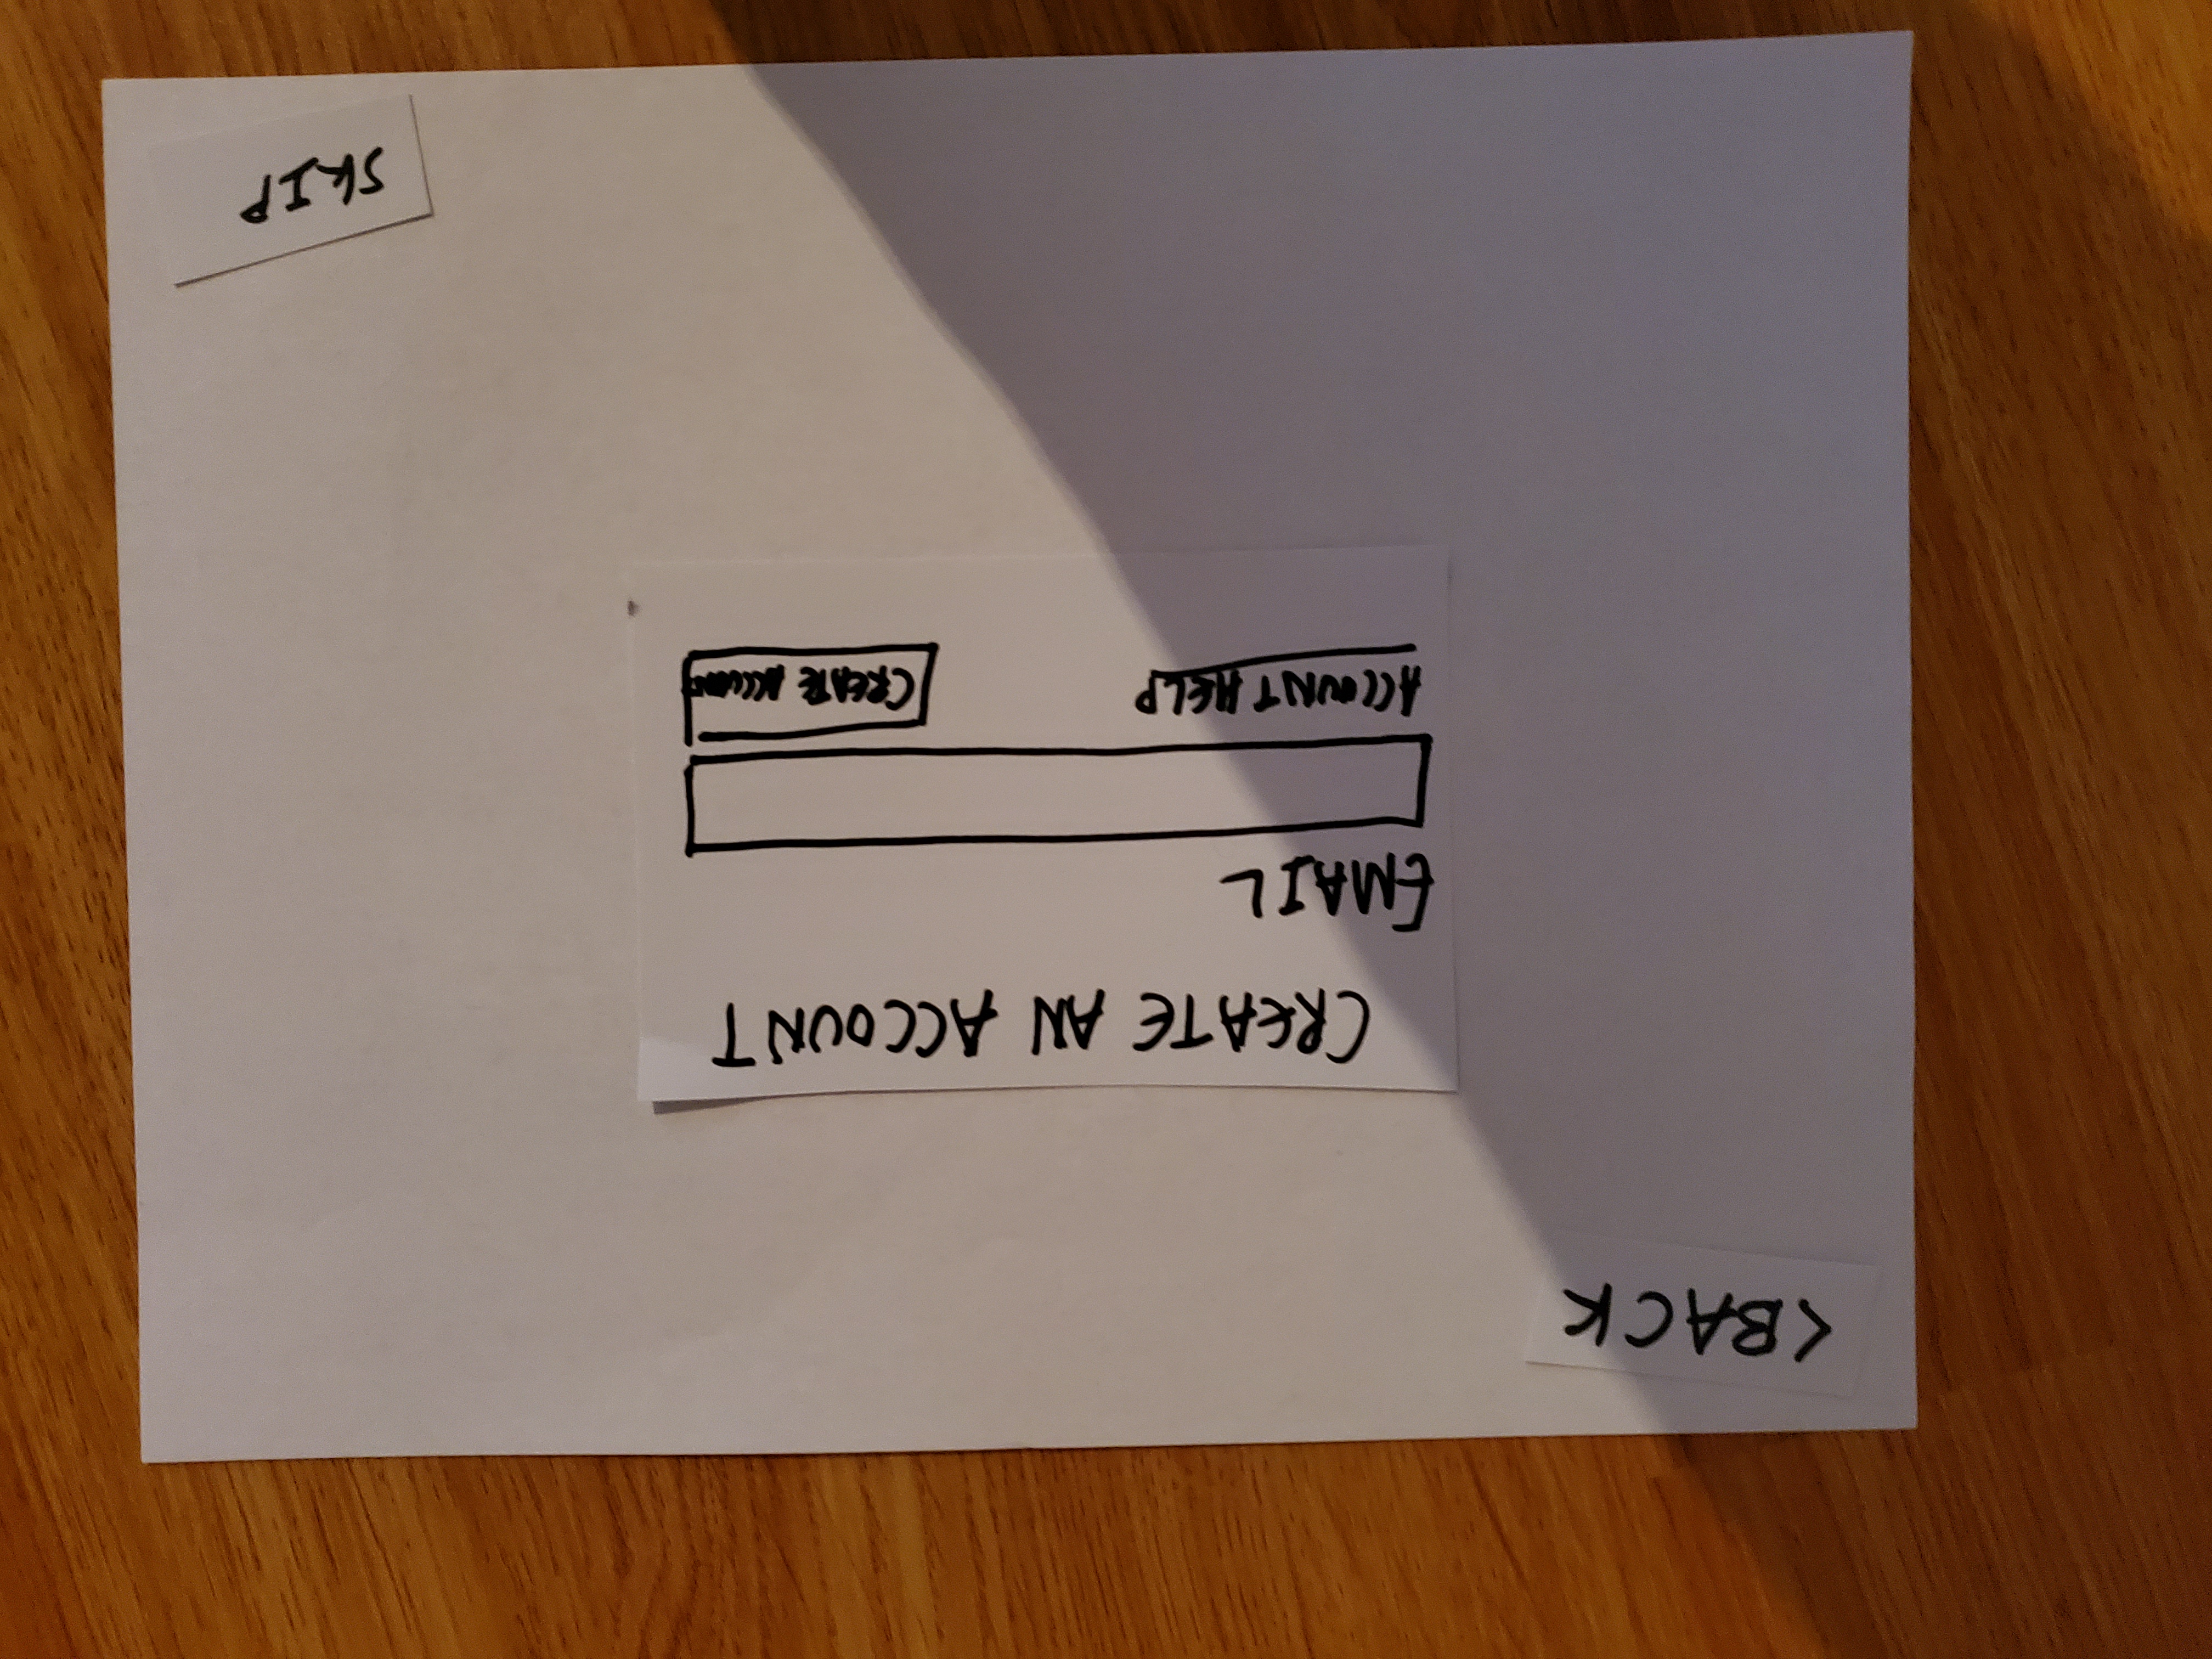 <BACK
CREATE AN ACCOUNT
EMAIL
ACCOUNT HELP
CREATE ACCOUNT
SKIP